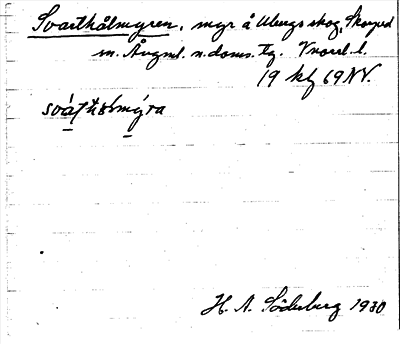 Svarthålmyren, myr å Ulvögs skog, Skorped
m. Ångml. n. doms. tg. Vnorrl. l.
19 kf 69 NV.
svart hålmýra
H. A. Söderberg 1930